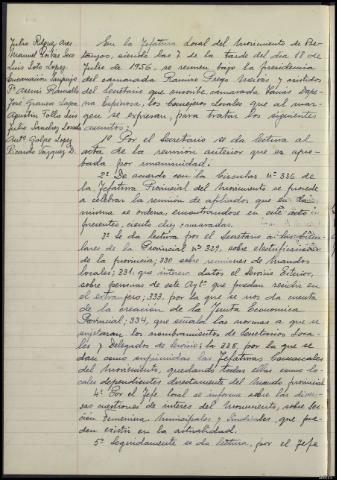 Julio Regue Ares
Manuel Dovas Seco
Luis Soto Lopez
Encarnación
Pº Asensi Ramallo
José Granea Lopez
Agustin Folla Leis
Julio Sanchez Losada
Antº Golpe Lopez
Ricardo Vazquez D.
En la Jefatura Local del Movimiento de Be-
tanzos, siendo las 7 de la tarde del dia 18 de
Julio de 1956, se reunen bajo la presidencia
del camarada Ramiro Prego y asistidos
del Secretario que suscribe camarada Dape-
na Espinosa, los Consejeros Locales que al mar-
gen se expresan, para tratar los siguientes
asuntos:
1º Por el Secretario se da lectura al
acta de la reunion anterior que es apro-
bada por unanimidad.
2º De acuerdo con la Circular nº 336 de
la Jefatura Provincial del Movimiento se procede
a celebrar la reunion de afiliados que en dicha
misma se ordena, encontrandose en este acto
presentes, ciento diez camaradas.
3º Se da lectura por el Secretario a las Circu-
lares de la Provincial nº 329, sobre electrificacion
de la provincia; 330 sobre reuniones de Mandos
locales; 331, que interesa datos el Servicio Exterior,
sobre personas de este Aytº que puedan residir en
el extranjero; 333, por la que se nos da cuenta
de la creación de la Junta Economica
Provincial; 334, que señala las normas a que se
los nombramientos de Secretarios Loca-
les y Delegados de Servicio; la 335, por la que se
dan como suprimidas las Jefaturas Comarcales
del Movimiento, quedando todas ellas como lo-
cales dependientes directamente del Mando provincial
4º Por el Jefe local se informa sobre las diver-
sas cuestiones de interés del Movimiento, sobre Sec-
ción Femenina Municipales y Sindicales, que pue-
den existir en la actualidad.
5º Seguidamente se da lectura, por el Jefe